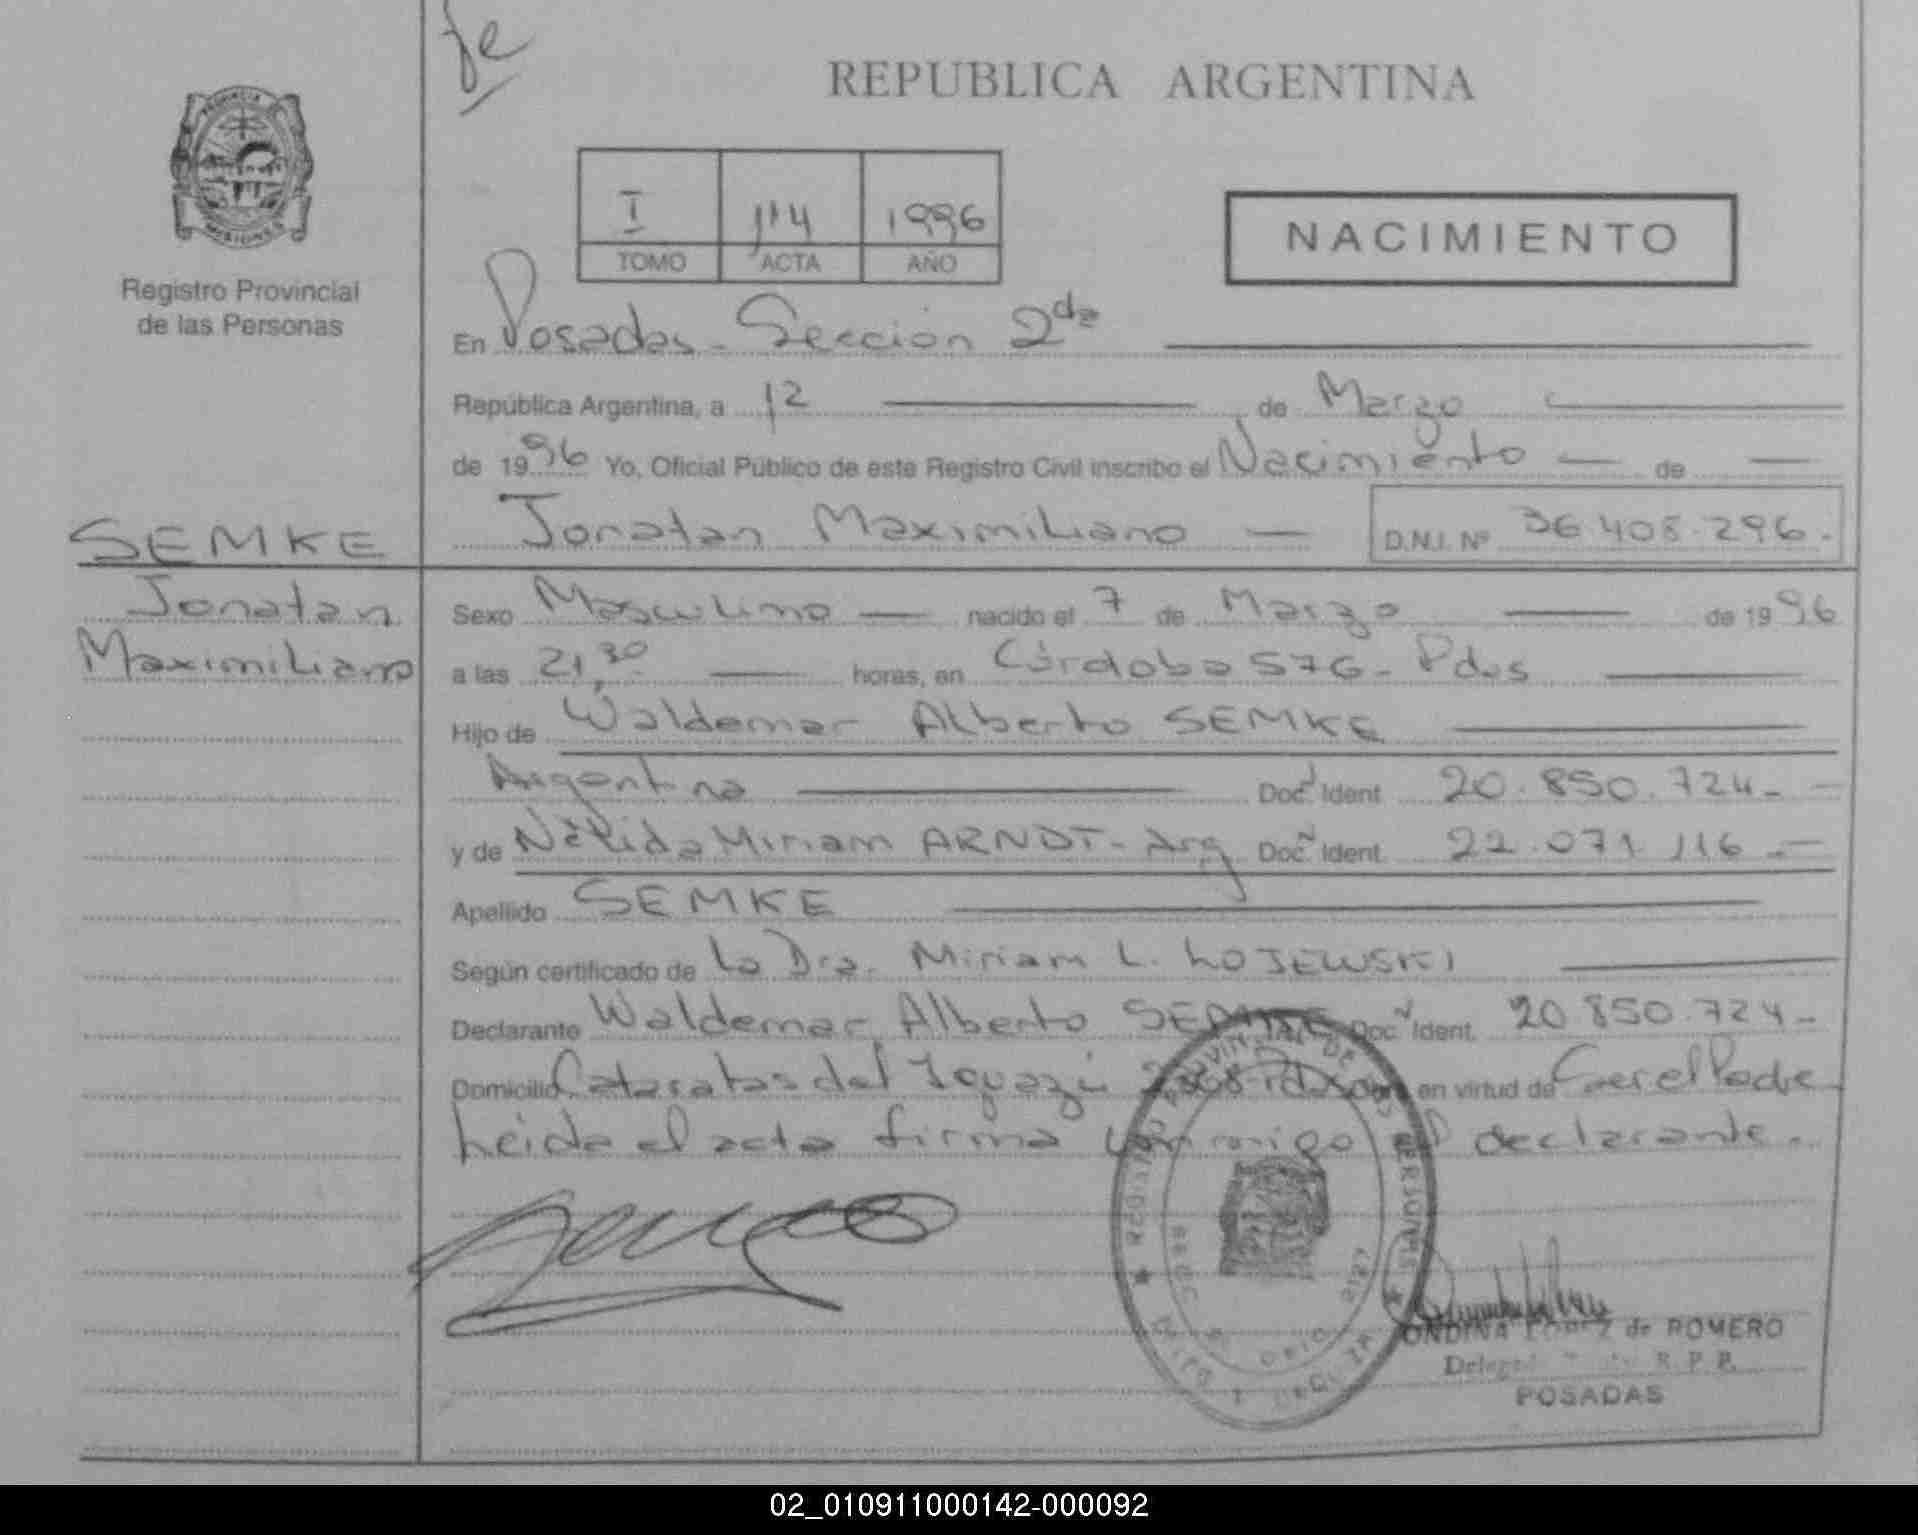 REPUBLICA ARGENTINA
PROVINCIA
MISIONES
Registro Provincial
de las Personas
I 114 1996
TOMO ACTA AÑO
NACIMIENTO
En Posadas - Sección 2da
República Argentina, a 12 de Marzo
de 1996 Yo, Oficial Público de este Registro Civil inscribo el Nacimiento de
SEMKE
Jonatan
Maximiliano
Jonatan Maximiliano D.N.I. Nº 36.408.296.
Sexo Masculino nacido el 7 de Marzo de 1996
a las 21,30 horas, en Córdoba 576 - Pdas
Hijo de Waldemar Alberto SEMKE
Argentina Doc. Ident. 20.850.724 -
y de Nélida Miriam ARNDT - Arg Doc. Ident. 22.071.116 -
Apellido SEMKE
Según certificado de la Dra. Miriam L. LOJEWSKI
Declarante Waldemar Alberto SEMKE Doc. Ident. 20.850.724 -
Domicilio Cataratas del Iguazú Pdas Obra en virtud de Ser el Padre
Leida el acta firma conmigo el declarante.
REGISTRO PROVINCIAL DE LAS PERSONAS
ONDINA LOPEZ de ROMERO
R. P. P.
POSADAS
02_010911000142-000092